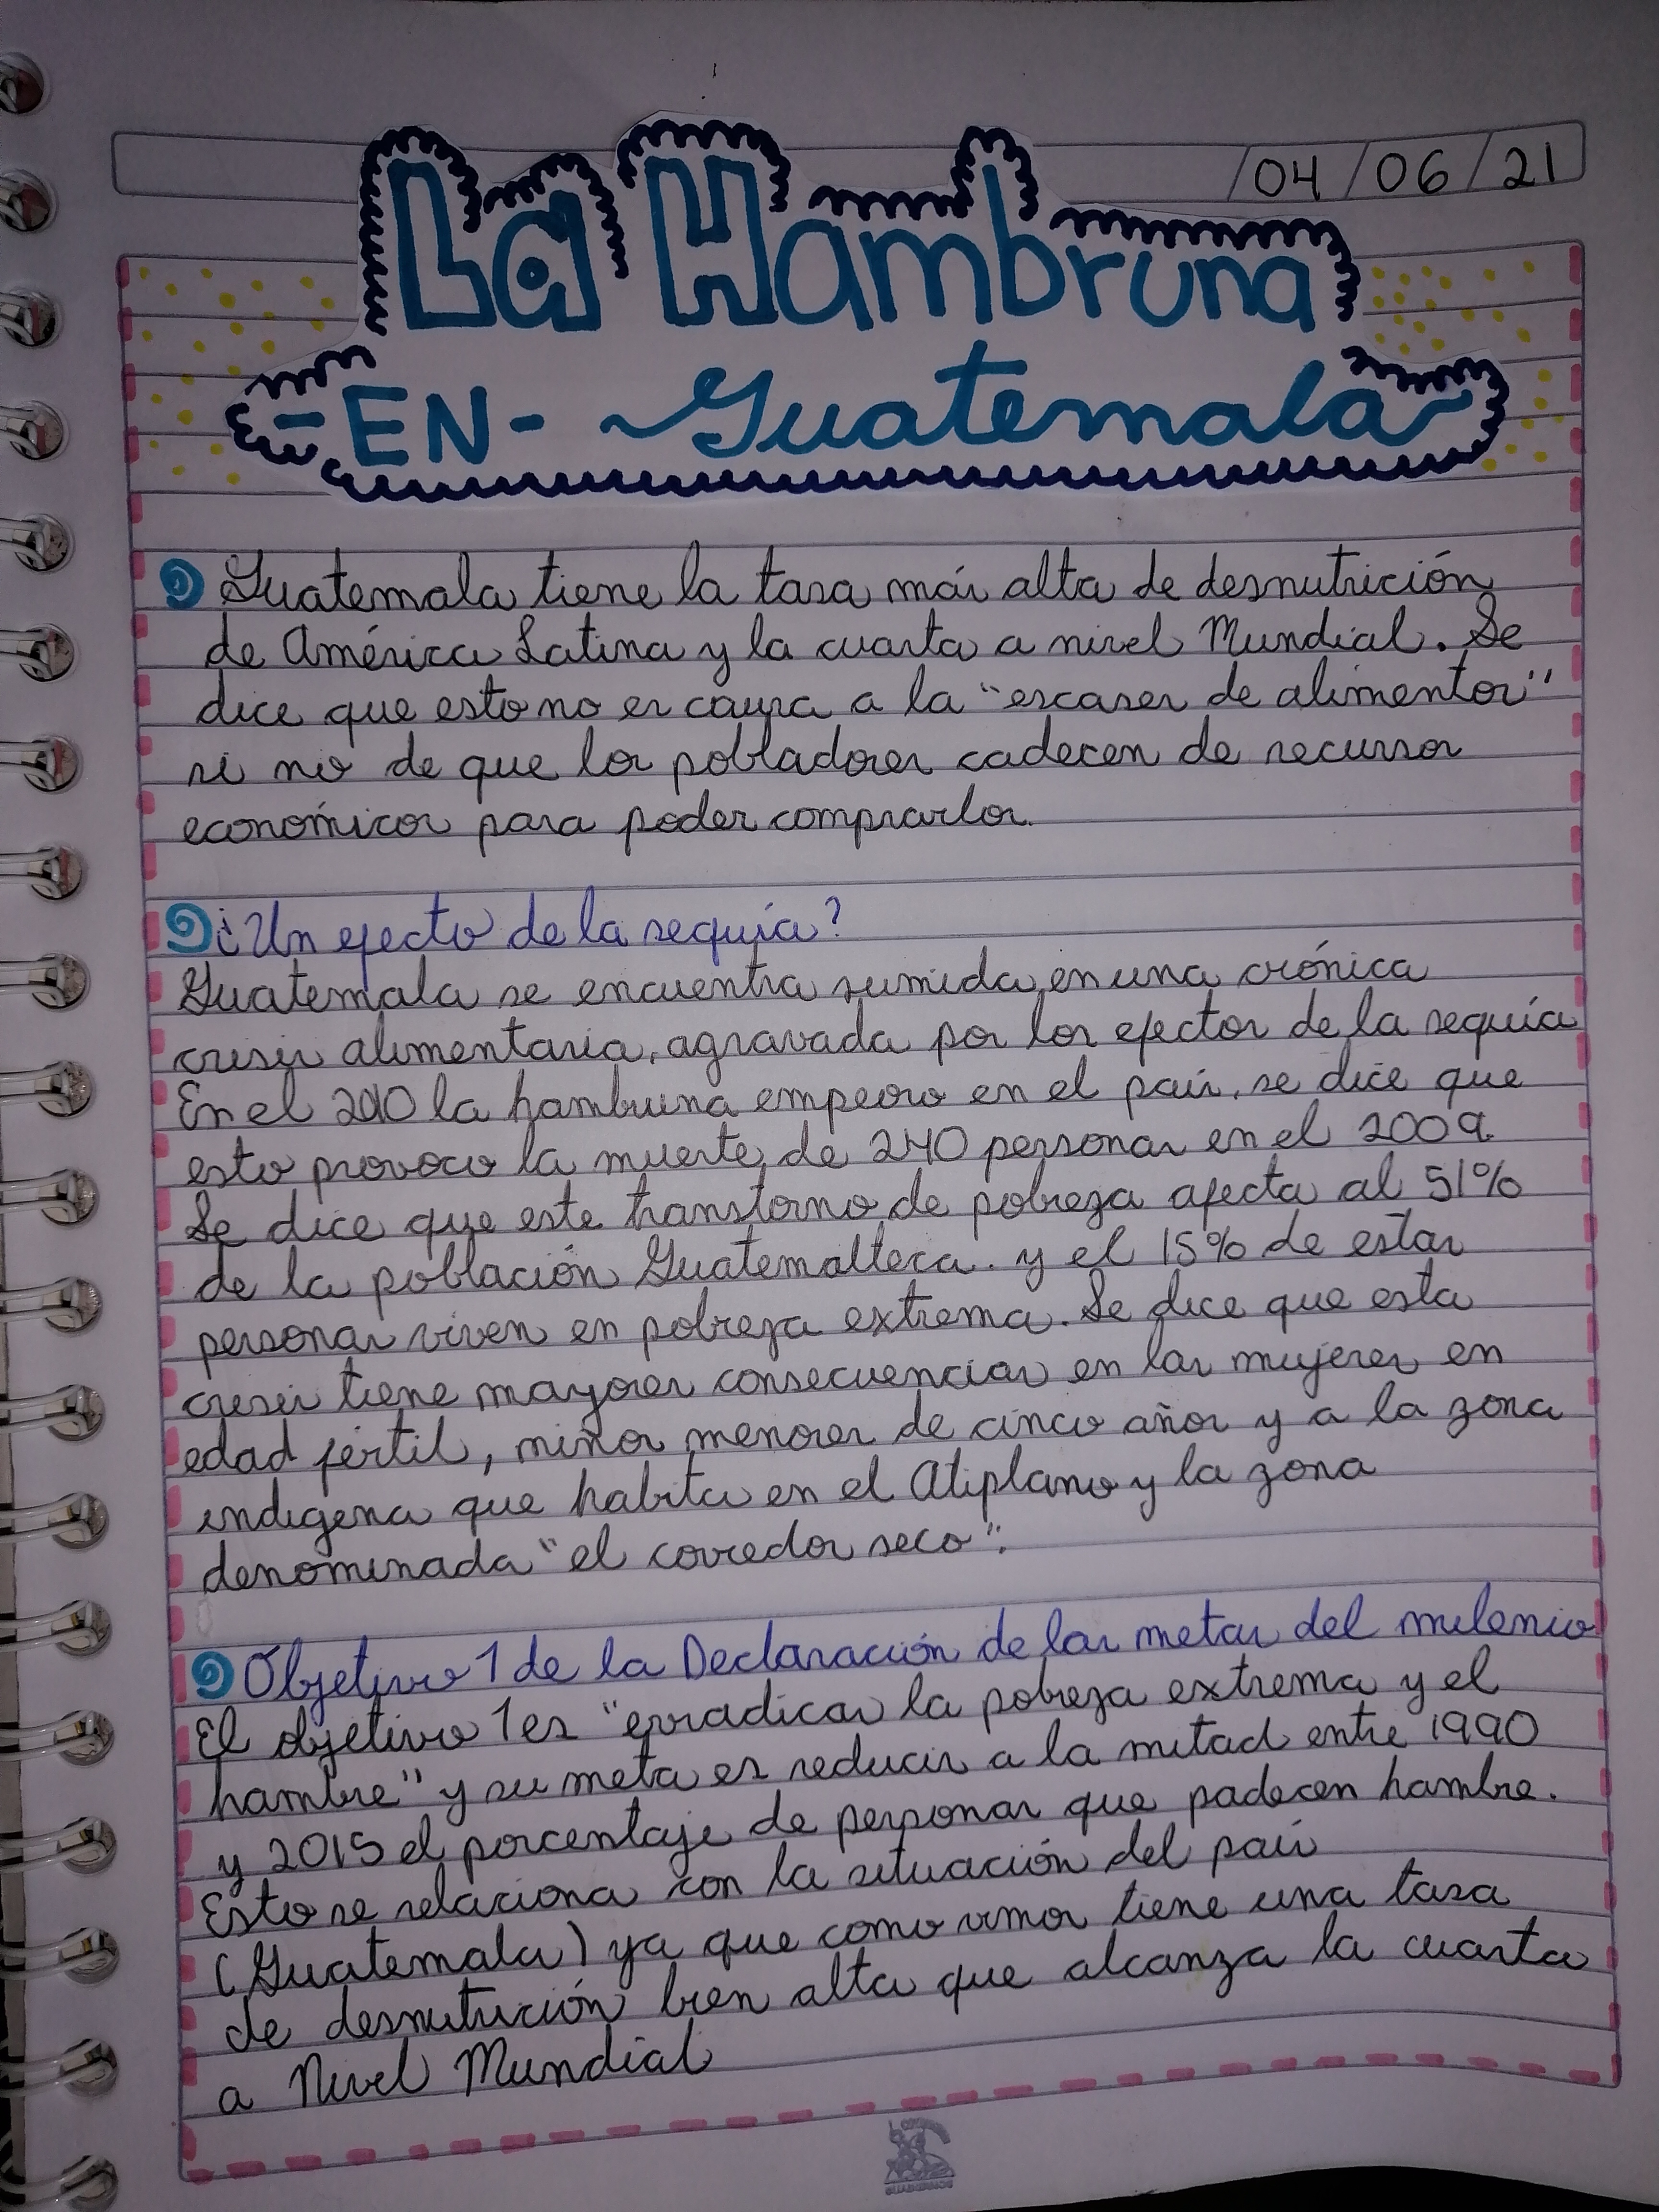 04/06/21
La Hambruna
-EN- ~Guatemala~
Guatemala tiene la tasa más alta de desnutrición
de América Latina y la cuarta a nivel Mundial. Se
dice que esto no es causa a la "escases de alimentos"
si no de que los pobladores cadecen de recursos
económicos para poder comprarlos.
¿Un efecto de la sequía?
Guatemala se encuentra sumida en una crónica
crisis alimentaria, agravada por los efectos de la sequía
En el 2010 la hambruna empeoro en el país, se dice que
esto provoco la muerte de 240 personas en el 2009.
Se dice que este transtorno de pobreza afecta al 51%
de la población Guatemalteca. y el 15% de estas
personas viven en pobreza extrema. Se dice que esta
crisis tiene mayores consecuencias en las mujeres en
edad fértil, niños menores de cinco años y a la zona
indigena que habita en el Atiplano y la zona
denominada "el corredor seco".
Objetivo 1 de la Declaración de las metas del milenio
El objetivo 1 es "erradicar la pobreza extrema y el
hambre" y su meta es reducir a la mitad entre 1990
y 2015 el porcentaje de personas que padecen hambre.
Esto se relaciona con la situación del país
(Guatemala) ya que como vimos tiene una tasa
de desnutrición bien alta que alcanza la cuarta
a Nivel Mundial